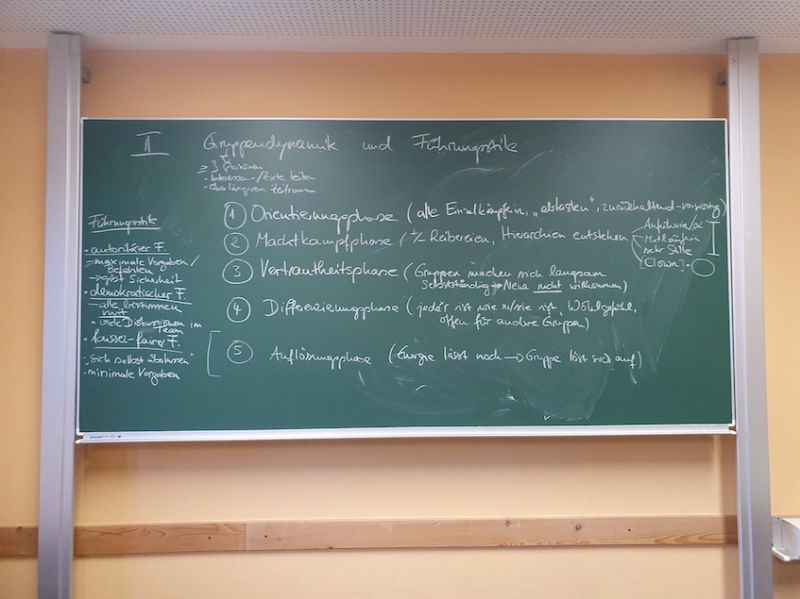 II Gruppendynamik und Führungsstile
≥ 3 Personen
- Interessen-/Ziele teilen
- über längeren Zeitraum
Führungsstile
- autoritärer F.
→ maximale Vorgaben/
Befehlen
→ gibt Sicherheit
- demokratischer F.
- alle bestimmen
mit
- viele Diskussionen im
Team
- laissez-fairer F.
- "sich selbst überlassen"
- minimale Vorgaben
1 Orientierungsphase (alle Einzelkämpfer:in, „abtasten“, zurückhaltend-vorsichtig)
2 Machtkampfphase (Reibereien, Hierarchien entstehen
Anführer:in
Mitläufer:in
sehr Stille
[Clown]
3 Vertrautheitsphase (Gruppen machen sich langsam
selbstständig → Neue nicht willkommen)
4 Differenzierungsphase (jede/r ist wie er/sie ist, Wohlgefühl,
offen für andere Gruppen)
5 Auflösungsphase (Energie lässt nach → Gruppe löst sich auf)